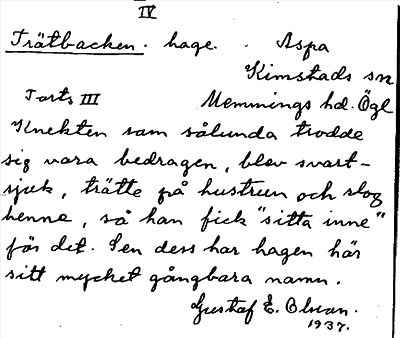 IV
Trätbacken. hage. . Aspa
Kimstads sn
Forts III Memmings hd. Ögl
Knekten som sålunda trodde
sig vara bedragen, blev svart-
sjuk, trätte på hustrun och slog
henne, så han fick "sitta inne"
för det. Sen dess har hagen här
sitt mycket gångbara namn.
Gustaf E. Olsson.
1937.